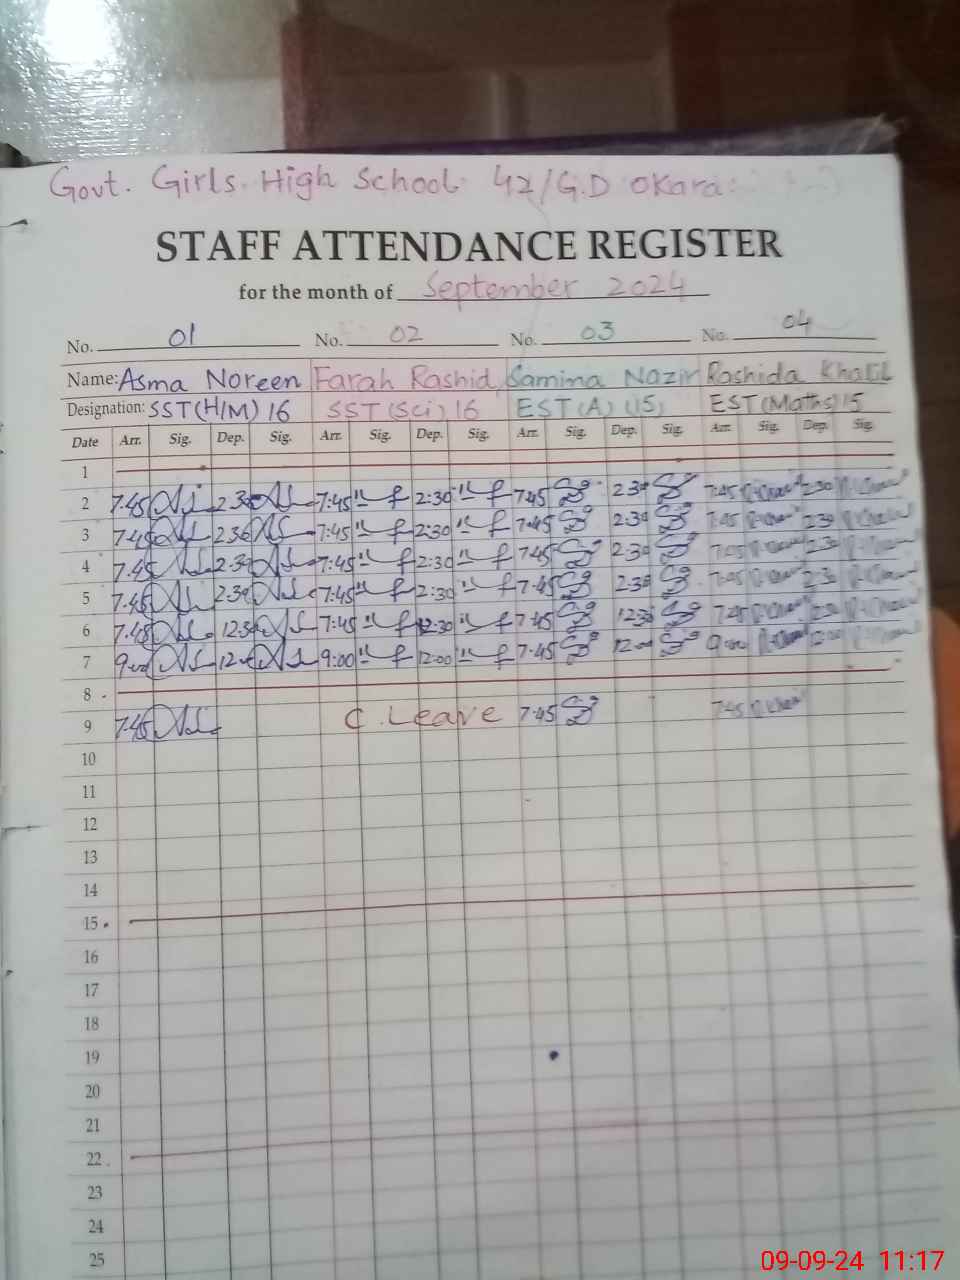 Govt. Girls. High School 42/G.D Okara
STAFF ATTENDANCE REGISTER
for the month of September 2024
No. 01 No. 02 No. 03 No. 04
Name: Asma Noreen Farah Rashid Samina Nazir Rashida Khalil
Designation: SST(H/M) 16 SST (Sci) 16 EST (A) (15) EST (Maths) 15
Date Arr. Sig. Dep. Sig. Arr. Sig. Dep. Sig. Arr. Sig. Dep. Sig. Arr. Sig. Dep. Sig.
1
2 7.45 2.30 7:45 2:30 7:45 2:30 7:45 2:30
3 7.45 2.30 7:45 2:30 7:45 2:30 7:45 2:30
4 7.45 2.30 7:45 2:30 7:45 2:30 7:45 2:30
5 7.45 2.30 7:45 2:30 7:45 2:30 7:45 2:30
6 7.45 12.30 7:45 12:30 7:45 12:30 7:45
7 9:00 12:00 9:00 12:00 7:45 12:00 9:00
8
9 7.45 C. Leave 7:45 7:45
10
11
12
13
14
15
16
17
18
19
20
21
22
23
24
25
09-09-24 11:17